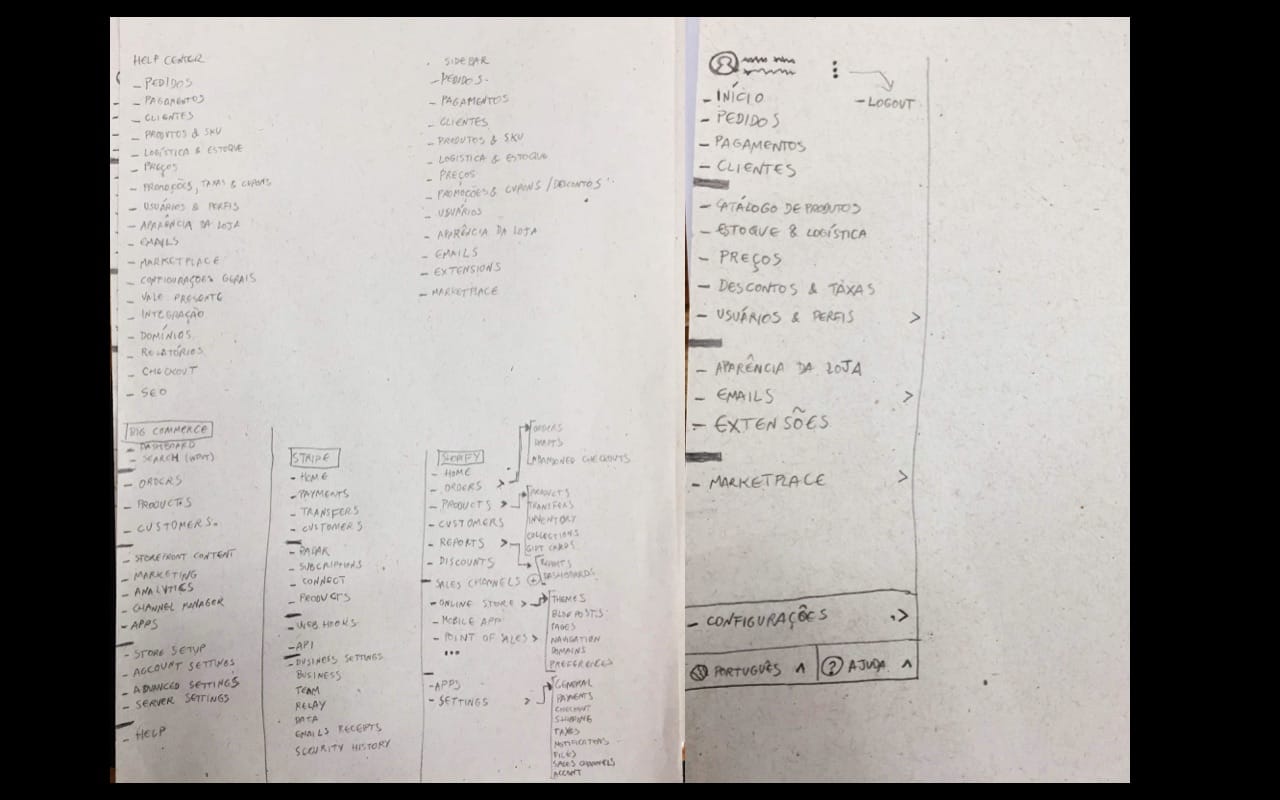 HELP CENTER
- PEDIDOS
- PAGAMENTOS
- CLIENTES
- PRODUTOS & SKU
- LOGÍSTICA & ESTOQUE
- PREÇOS
- PROMOÇÕES, TAXAS & CUPONS
- USUÁRIOS & PERFIS
- APARÊNCIA DA LOJA
- EMAILS
- MARKETPLACE
- CONFIGURAÇÕES GERAIS
- VALE PRESENTE
- INTEGRAÇÃO
- DOMÍNIOS
- RELATÓRIOS
- CHECKOUT
- SEO
SIDEBAR
- PEDIDOS
- PAGAMENTOS
- CLIENTES
- PRODUTOS & SKU
- LOGISTICA & ESTOQUE
- PREÇOS
- PROMOÇÕES & CUPONS / DESCONTOS
- USUÁRIOS
- APARÊNCIA DA LOJA
- EMAILS
- EXTENSIONS
- MARKETPLACE
BIG COMMERCE
- DASHBOARD
- SEARCH (INPUT)
- ORDERS
- PRODUCTS
- CUSTOMERS
- STOREFRONT CONTENT
- MARKETING
- ANALYTICS
- CHANNEL MANAGER
- APPS
- STORE SETUP
- ACCOUNT SETTINGS
- ADVANCED SETTINGS
- SERVER SETTINGS
- HELP
STRIPE
- HOME
- PAYMENTS
- TRANSFERS
- CUSTOMERS
- RADAR
- SUBSCRIPTIONS
- CONNECT
- PRODUCTS
- WEB HOOKS
- API
- BUSINESS SETTINGS
BUSINESS
TEAM
RELAY
DATA
EMAILS RECEIPTS
SECURITY HISTORY
SHOPIFY
- HOME
- ORDERS >
- PRODUCTS >
- CUSTOMERS
- REPORTS >
- DISCOUNTS
SALES CHANNELS +
- ONLINE STORE >
- MOBILE APP
- POINT OF SALES >
...
- APPS
- SETTINGS >
ORDERS
DRAFTS
ABANDONED CHECKOUTS
PRODUCTS
TRANSFERS
INVENTORY
COLLECTIONS
GIFT CARDS
REPORTS
DASHBOARDS
THEMES
BLOG POSTS
PAGES
NAVIGATION
DOMAINS
PREFERENCES
GENERAL
PAYMENTS
CHECKOUT
SHIPPING
TAXES
NOTIFICATIONS
FILES
SALES CHANNELS
ACCOUNT
- LOGOUT
- INÍCIO
- PEDIDOS
- PAGAMENTOS
- CLIENTES
- CATÁLOGO DE PRODUTOS
- ESTOQUE & LOGÍSTICA
- PREÇOS
- DESCONTOS & TAXAS
- USUÁRIOS & PERFIS >
- APARÊNCIA DA LOJA
- EMAILS >
- EXTENSÕES
- MARKETPLACE >
- CONFIGURAÇÕES >
PORTUGUÊS ^
? AJUDA ^